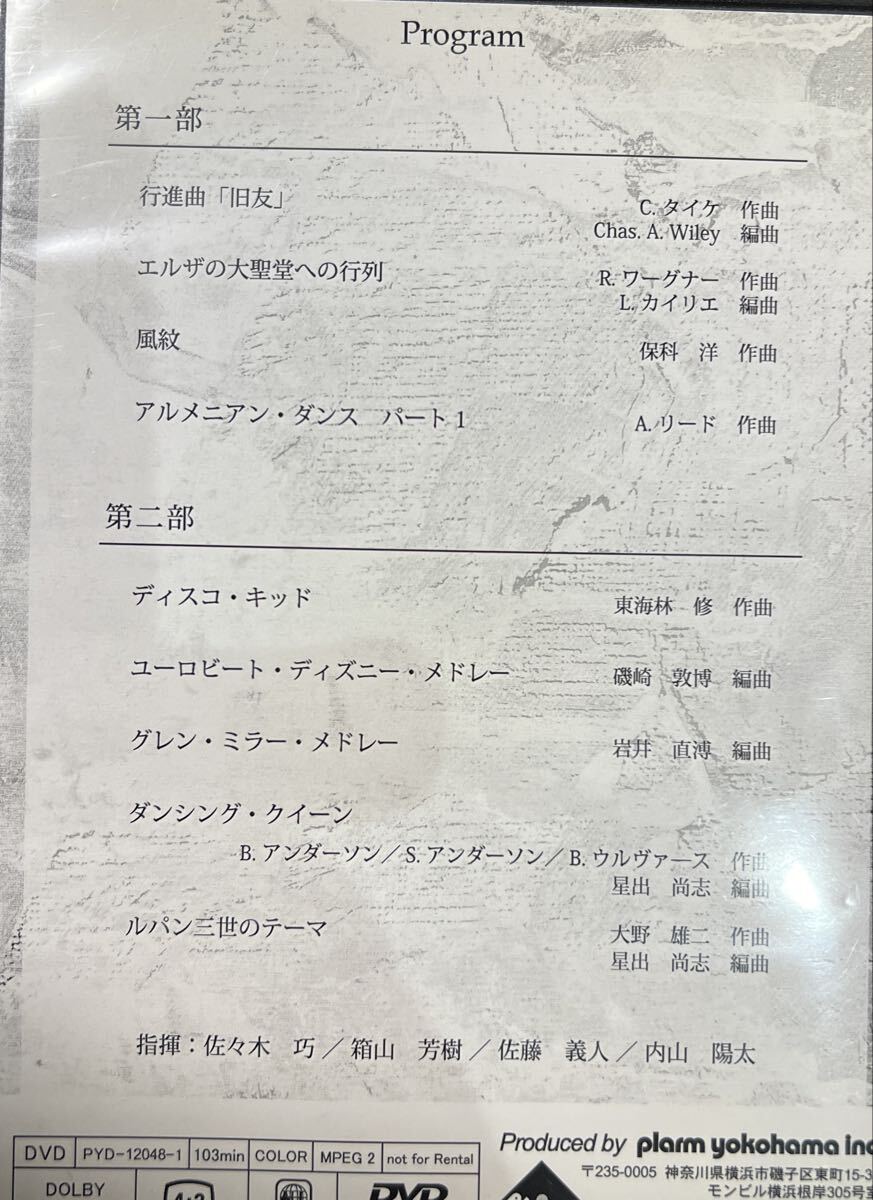 Program
第一部
行進曲「旧友」 C. タイケ 作曲
Chas. A. Wiley 編曲
エルザの大聖堂への行列 R. ワーグナー 作曲
L. カイリエ 編曲
風紋 保科 洋 作曲
アルメニアン・ダンス パート 1 A. リード 作曲
第二部
ディスコ・キッド 東海林 修 作曲
ユーロビート・ディズニー・メドレー 磯崎 敦博 編曲
グレン・ミラー・メドレー 岩井 直溥 編曲
ダンシング・クイーン
B. アンダーソン／S. アンダーソン／B. ウルヴァース 作曲
星出 尚志 編曲
ルパン三世のテーマ 大野 雄二 作曲
星出 尚志 編曲
指揮：佐々木 巧／箱山 芳樹／佐藤 義人／内山 陽太
DVD PYD-12048-1 103min COLOR MPEG 2 not for Rental
Produced by plarm yokohama inc
〒235-0005 神奈川県横浜市磯子区東町15-3
モンビル横浜根岸305号室
DOLBY 4:3 DVD